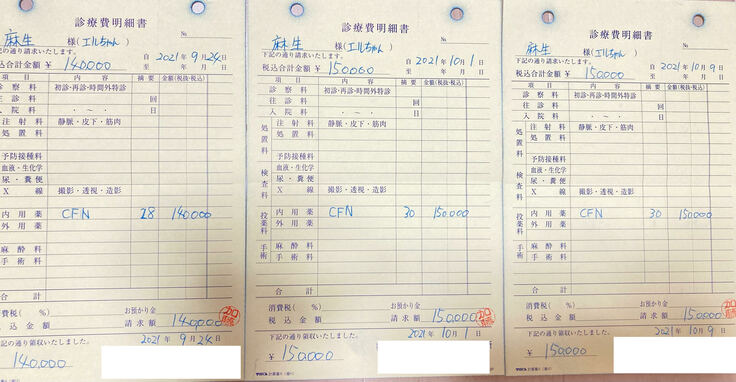 診療費明細書
№
麻生 様(エルちゃん)
下記の通り請求いたします。
自 2021年 9月 24日
税込合計金額 ¥ 140,000
至 年 月 日
項 目 内 容 摘 要 金額(税抜・税込)
診 察 料 初診・再診・時間外特診
往 診 料 回
入 院 料 ・ ~ ・ 日
処置料
注 射 料 静脈・皮下・筋肉
処 置 料
予防接種料
検査料
血液・生化学
尿・糞便
X 線 撮影・透視・造影
内 用 薬 CFN 28 140,000
外 用 薬
麻 酔 料
手 術 料
合 計
消費税( %) お預かり金
税 込 金 額 請 求 額 140,000
下記の通り領収いたしました。
2021年 9月 24日
140,000
診療費明細書
№
麻生 様(エルちゃん)
下記の通り請求いたします。
自 2021年 10月 1日
税込合計金額 ¥ 150,000
至 年 月 日
項 目 内 容 摘 要 金額(税抜・税込)
診 察 料 初診・再診・時間外特診
往 診 料 回
入 院 料 ・ ~ ・ 日
処置料
注 射 料 静脈・皮下・筋肉
処 置 料
予防接種料
検査料
血液・生化学
尿・糞便
X 線 撮影・透視・造影
投薬料
内 用 薬 CFN 30 150,000
外 用 薬
手術
麻 酔 料
手 術 料
合 計
消費税( %) お預かり金
税 込 金 額 請 求 額 150,000
下記の通り領収いたしました。
2021年 10月 1日
¥150,000
診療費明細書
№
麻生 様(エルちゃん)
下記の通り請求いたします。
自 2021年 10月 9日
税込合計金額 ¥ 150,000
至 年 月 日
項 目 内 容 摘 要 金額(税抜・税込)
診 察 料 初診・再診・時間外特診
往 診 料 回
入 院 料 ・ ~ ・ 日
処置料
注 射 料 静脈・皮下・筋肉
処 置 料
予防接種料
検査料
血液・生化学
尿・糞便
X 線 撮影・透視・造影
投薬料
内 用 薬 CFN 30 150,000
外 用 薬
手術
麻 酔 料
手 術 料
合 計
消費税( %) お預かり金
税 込 金 額 請 求 額 150,000
下記の通り領収いたしました。
2021年 10月 9日
¥150,000